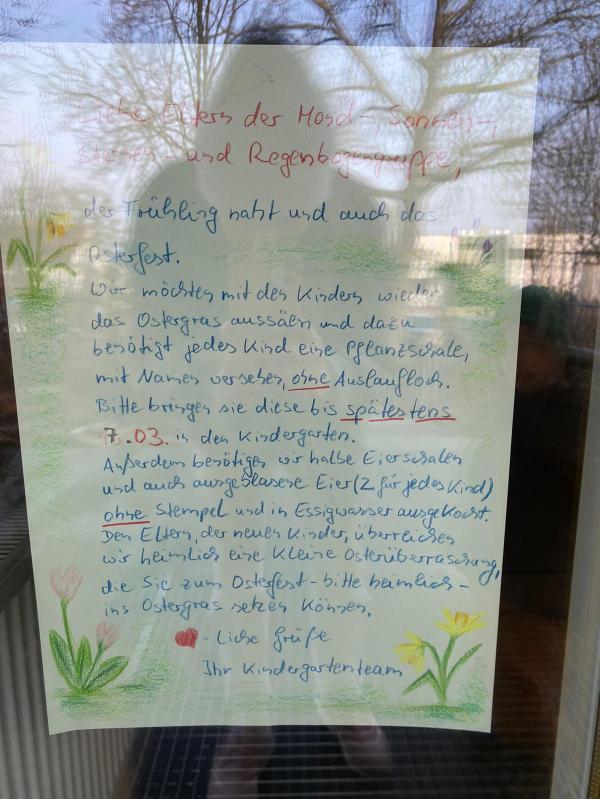 Liebe Eltern der Mond-, Sonnen-,
Sternen- und Regenbogengruppe,
der Frühling naht und auch das
Osterfest.
Wir möchten mit den Kindern wieder
das Ostergras aussäen und dazu
benötigt jedes Kind eine Pflanzschale,
mit Namen versehen, ohne Auslaufloch.
Bitte bringen sie diese bis spätestens
7.03. in den Kindergarten.
Außerdem benötigen wir halbe Eierschalen
und auch ausgeblasene Eier (2 für jedes Kind)
ohne Stempel und in Essigwasser ausgekocht.
Den Eltern, der neuen Kinder, überreichen
wir heimlich eine kleine Osterüberraschung,
die Sie zum Osterfest - bitte heimlich -
ins Ostergras setzen können.
-liche Grüße
Ihr Kindergartenteam